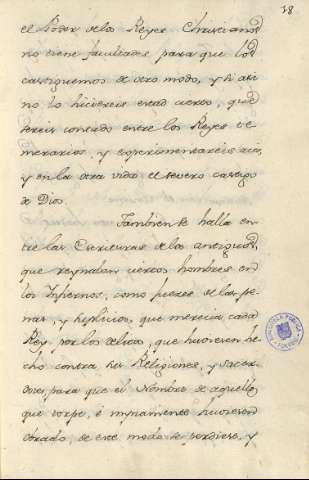 18
el Poder de los Reyes Christianos
no tiene facultades para que los
castiguemos de otro modo, y si asi
no lo hiciereis estad cierto, que
sereis contado entre los Reyes te
merarios, y experimentareis aqui,
y en la otra vida el severo castigo
de Dios.
Tambien se halla en
tre las Escrituras de los antiguos,
que reynaban ciertos hombres en
los Infiernos, como Juezes de las pe
nas, y suplicios, que merecia cada
Rey por los delitos, que huviesen he
cho contra las Religiones, y Sacer
dotes, para que el Nombre de aquellos
que torpe, è impiamente huviesen
obrado, de este modo se perdiese, y
BIBLIOTECA PUBLICA
TOLEDO